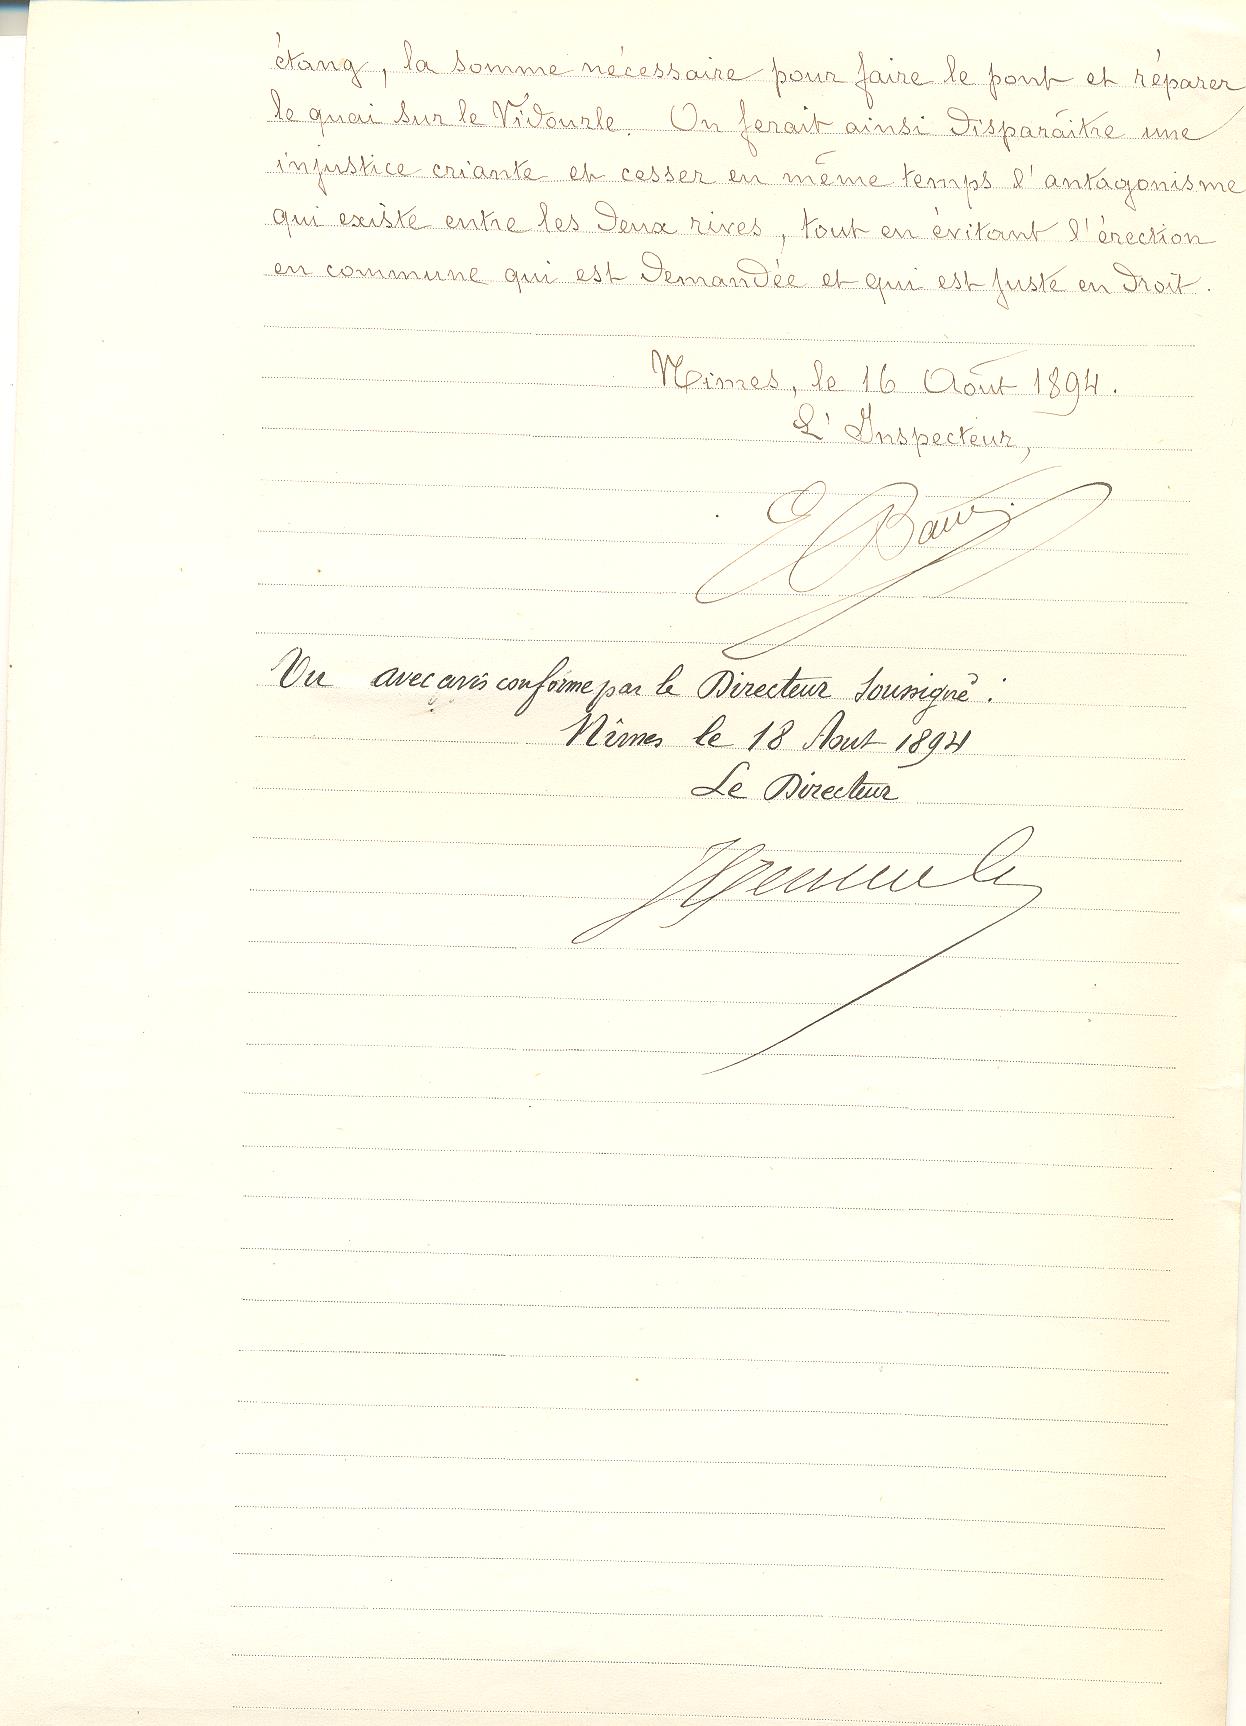 étang, la somme nécessaire pour faire le pont et réparer
le quai sur le Vidourle. On ferait ainsi disparaître une
injustice criante et cesser en même temps l'antagonisme
qui existe entre les deux rives, tout en évitant l'érection
en commune qui est demandée et qui est juste en droit.
Nimes, le 16 Août 1894.
L'Inspecteur,
E
Vu avec avis conforme par le Directeur soussigné :
Nîmes le 18 Aout 1894
Le Directeur